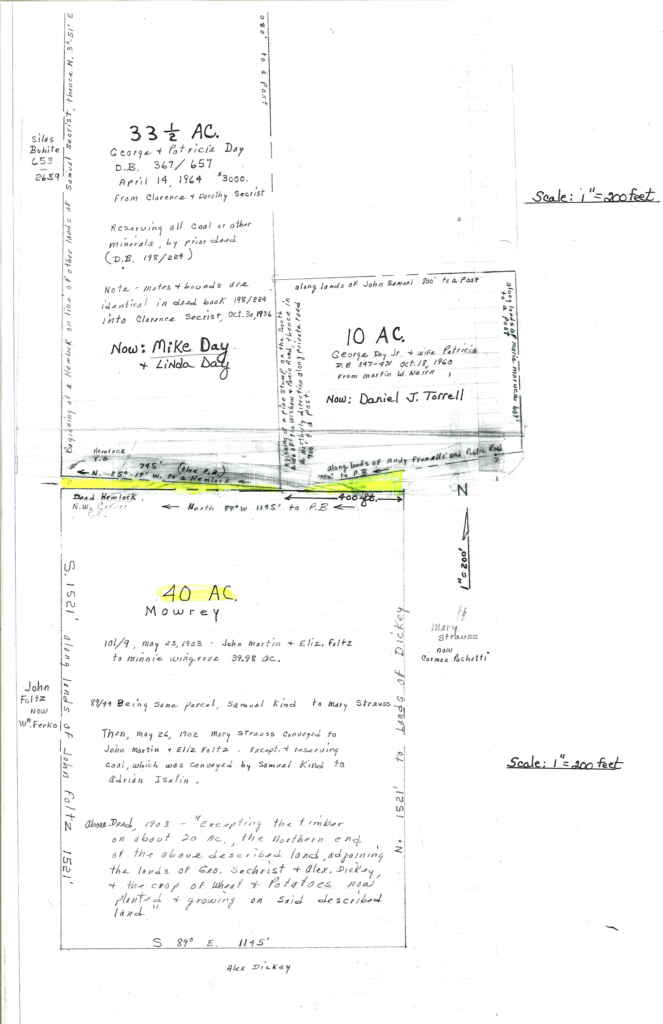 33 ½ AC.
George & Patricia Day
D.B. 367/657
April 14, 1964 $3000.
From Clarence & Dorothy Secrist
Reserving all coal or other
minerals, by prior deed
(D.B. 198/284)
Note - metes & bounds are
identical in deed book 198/284
into Clarence Secrist, Oct. 30, 1936
Now: Mike Day
& Linda Day
Silas
Bohite
653
-
2659
Beginning at a Hemlock on line of other lands of Samuel Secrist, thence N. 3°-51' E
to a Post
Scale: 1" = 200 feet
along lands of John Samuel 800' to a Post
10 AC.
George Day Jr. & wife Patricia
Oct. 18, 1960
From Martin W.
Now: Daniel J. Torrell
to a Post
along lands of Andy and Public Road
to P.B
Hemlock
745' (Else P.B.)
N. 85°-17' W. to a Hemlock
400 ft.
Dead Hemlock
N.W. Corner
North 89° W 1145' to P.B
N
1" = 200'
40 AC.
Mowrey
101/9, May 23, 1903 - John Martin & Eliz. Foltz
to Minnie 39.98 ac.
88/44 Being same parcel, Samuel Kind to Mary Strauss
Then, May 26, 1902 Mary Strauss conveyed to
John Martin & Eliz Foltz. Except & reserving
coal, which was conveyed by Samuel Kind to
Adrian Iselin.
Above Deed, 1903 - "Excepting the timber
on about 20 Ac., the Northern end
of the above described land, adjoining
the lands of Geo. Sechrist & Alex. Dickey,
& the crop of Wheat & Potatoes now
planted & growing on said described
land"
S. 1521' along lands of John Foltz 1521'
N. 1521' to lands of Dickey
John
Foltz
now
Wm. Ferko
Mary
Strauss
now
Carmen Pochetti
Scale: 1" = 200 feet
S 89° E. 1145'
Alex Dickey